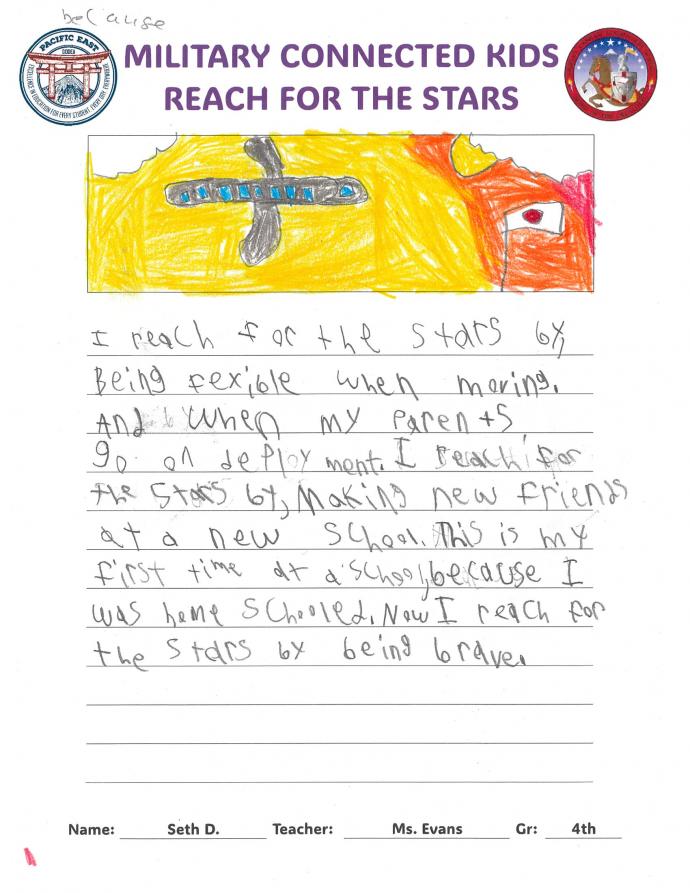 because
MILITARY CONNECTED KIDS
REACH FOR THE STARS
PACIFIC EAST
DODEA
EXCELLENCE IN EDUCATION FOR EVERY STUDENT, EVERY DAY, EVERYWHERE
I reach for the stars by,
Being fexible when moving.
And when my parents
go on deployment. I reach for
the stars by, Making new friends
at a new school. This is my
first time at a school, because I
was home schooled. Now I reach for
the stars by being brave.
Name: Seth D. Teacher: Ms. Evans Gr: 4th